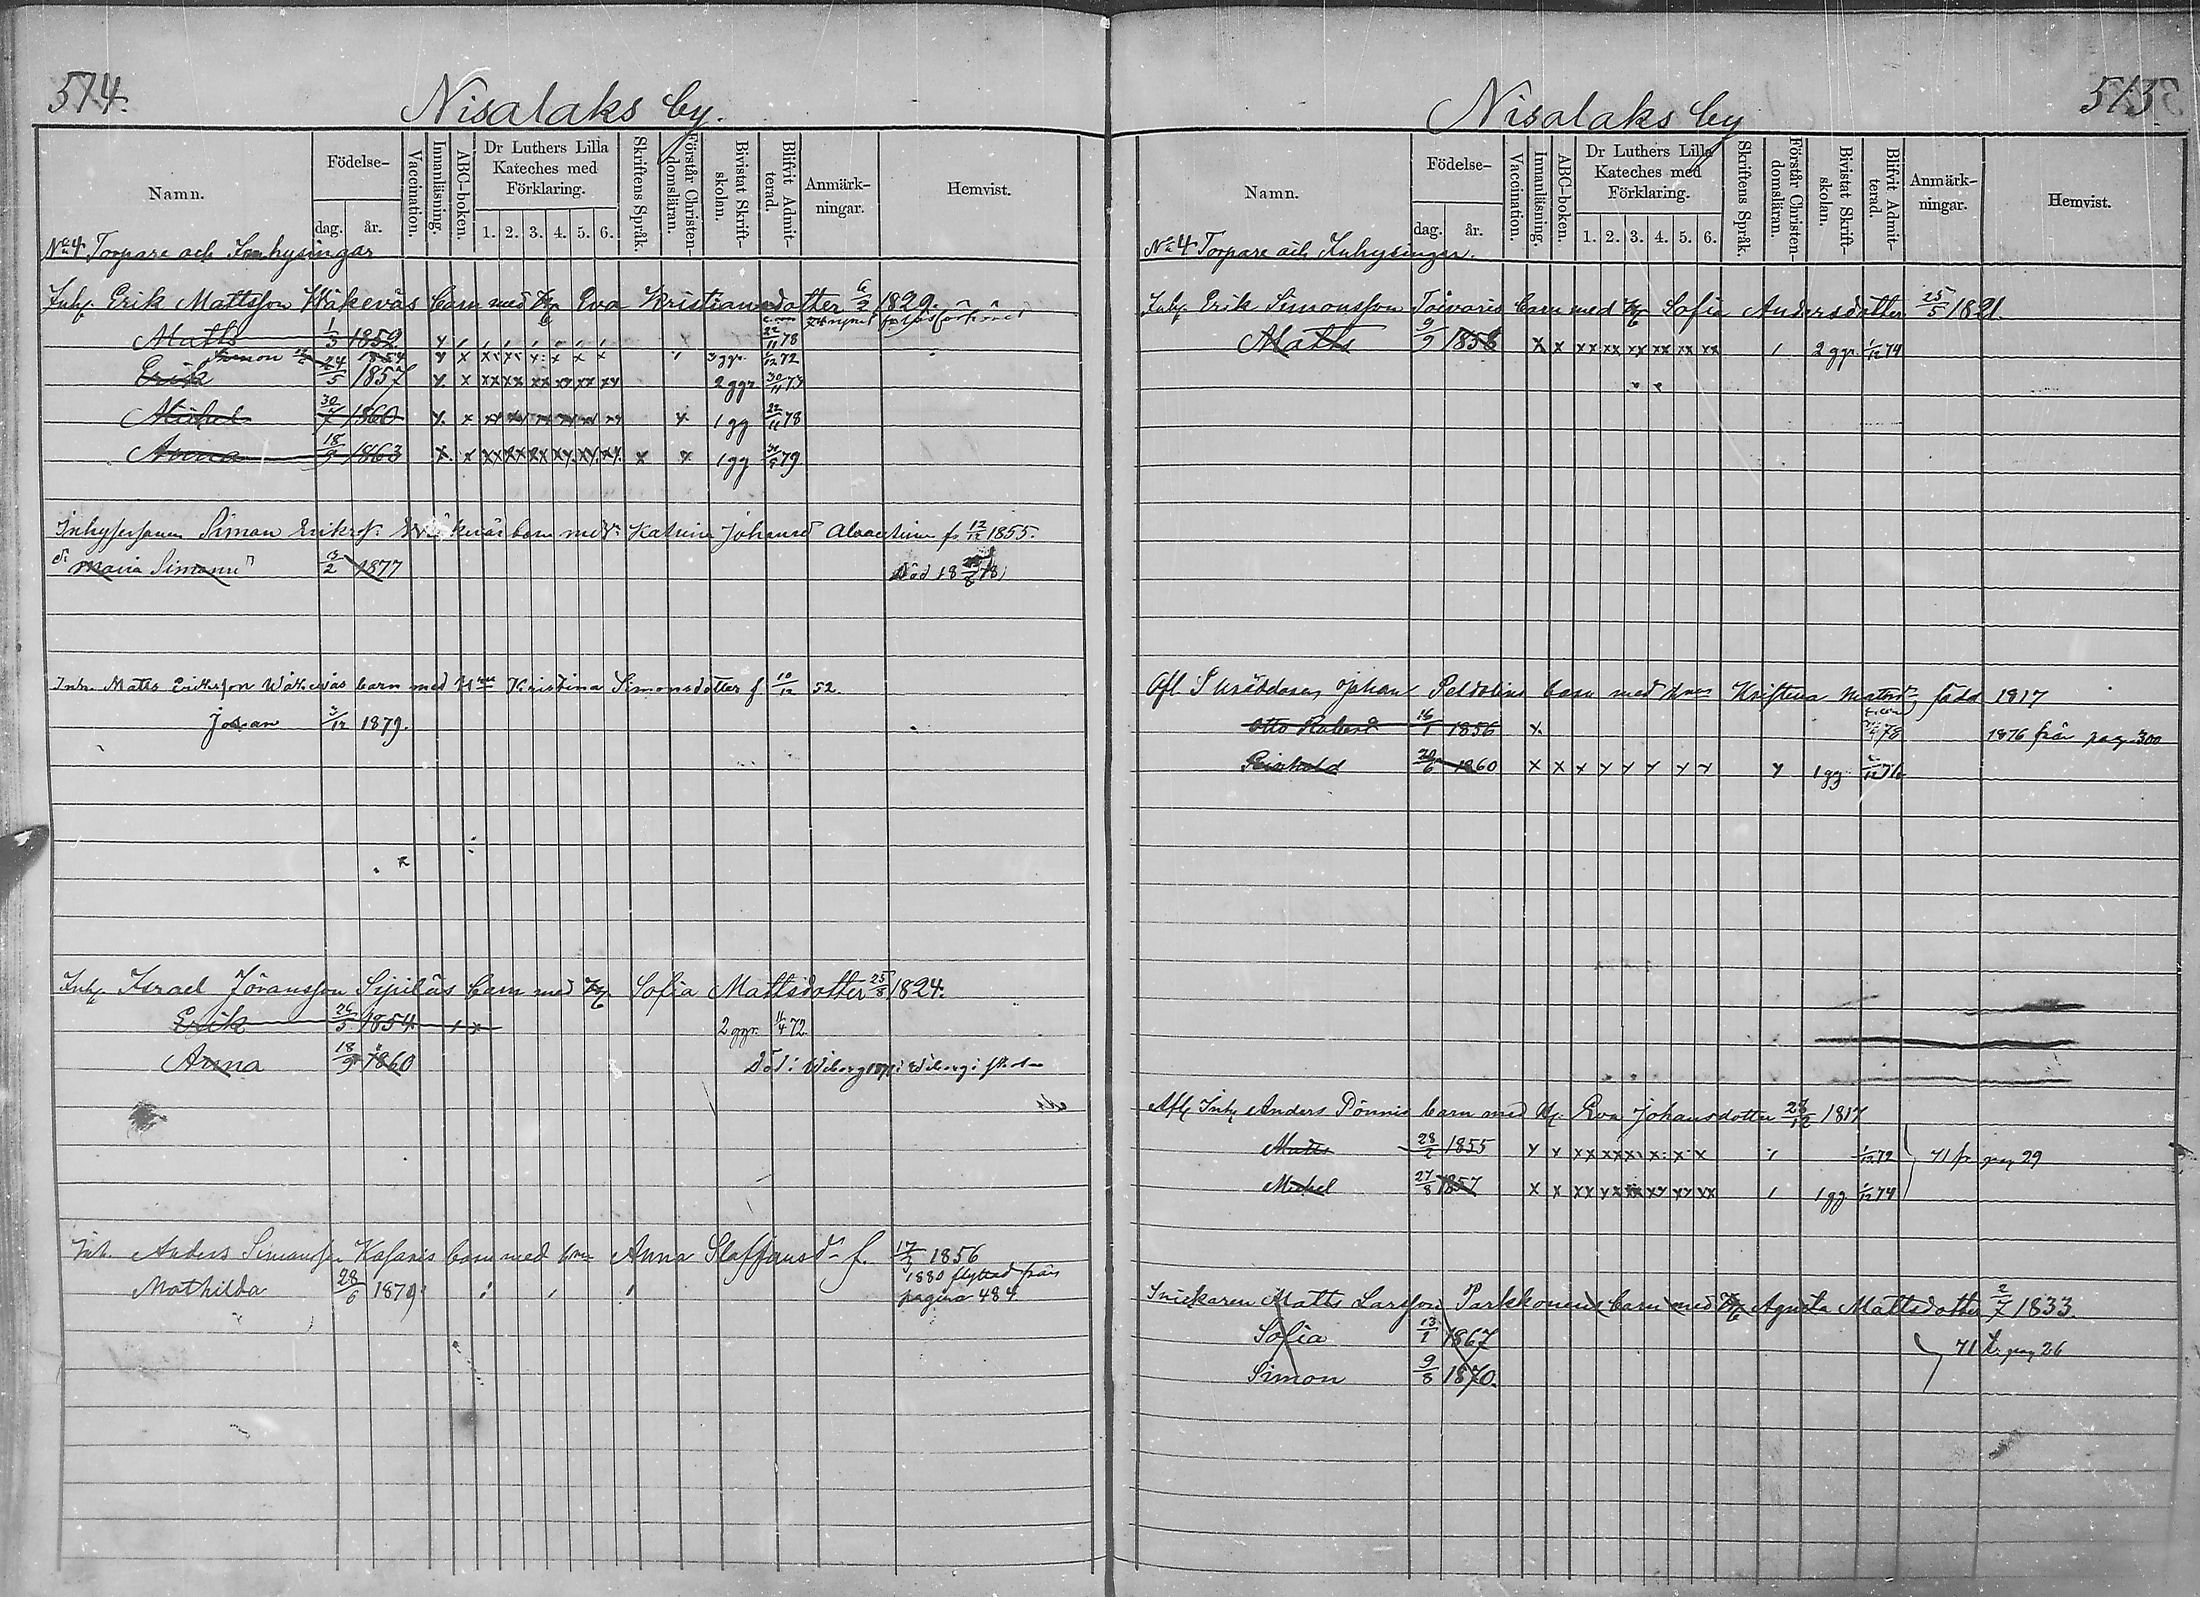 514.
Nisalaks by.
Namn.
Födelse-
dag. år.
Vaccination.
Innanläsning.
ABC-boken.
Dr Luthers Lilla Kateches med Förklaring.
1. 2. 3. 4. 5. 6.
Skriftens Språk.
Förstår Christen-domsläran.
Bivistat Skrift-skolan.
Blifvit Admit-terad.
Anmärk-ningar.
Hemvist.
No 4 Torpare och Inhysingar
Inh. Erik Mattsson Wäkeväs barn med H Eva Kristiansdotter 6/2 1829.
Matts 1/3 1852 22/11 78
Simon 1854 3 ggr. 1/12 72
Erik 24/5 1857 y x xx xx xx xx xx xx 2 ggr 30/11 73
Michel 30/7 1860 1 gg 22/11 78
Anna 18/9 1863 x x xx xx xx xx xx xx x x 1 gg 79.
Simon barn med Katrina Johansd f. 13/12 1855.
Maria Simonsd 3/2 1877 Död 18 78
Inh. Matts Eriksson Wäkeväs barn med Kristina Simonsdotter f 10/12 52.
Johan 3/12 1879.
Inh. Israel Jöransson Sipiläs barn med H Sofia Mattsdotter 25/8 1824.
Erik 26/5 1854 2 ggr. 11/4 72
Anna 18/9 1860 Död i Wiborg
Inh. Anders Simonss. barn med Anna Staffansd f. 17/3 1856
Mathilda 28/6 1879 1880 flyttad från
pagina 484
515
Nisalaks by
Namn.
Födelse-
dag. år.
Vaccination.
Innanläsning.
ABC-boken.
Dr Luthers Lilla Kateches med Förklaring.
1. 2. 3. 4. 5. 6.
Skriftens Språk.
Förstår Christen-domsläran.
Bivistat Skrift-skolan.
Blifvit Admit-terad.
Anmärk-ningar.
Hemvist.
No 4 Torpare och Inhysingar.
Inh. Erik Simonsson Toivaris barn med H Sofia Andersdotter 25/5 1821.
Matts 9/9 1858 x x xx xx xx xx xx xx 1 2 ggr. 1/12 74
Afl. Skräddaren Johan Peldolins barn med Kristina Matsd. född 1817
Otto Robert 16/1 1856 x. 78 1876 från pag. 300
Reinhold 20/6 1860 x x x y y y y y y 1 gg 76
Afl. Inh. Anders Pönnis barn med H. Eva Johansdotter 24/12 1817
Matts 28/2 1855 1/12 72 71 fr pag 29
Michel 27/8 1857 1 gg 1/12 74
Snickaren Matts Larsson Parkkonens barn med H Agneta Mattsdotter 2/7 1833.
Sofia 13/1 1867 71 tr pag 26
Simon 9/8 1870.